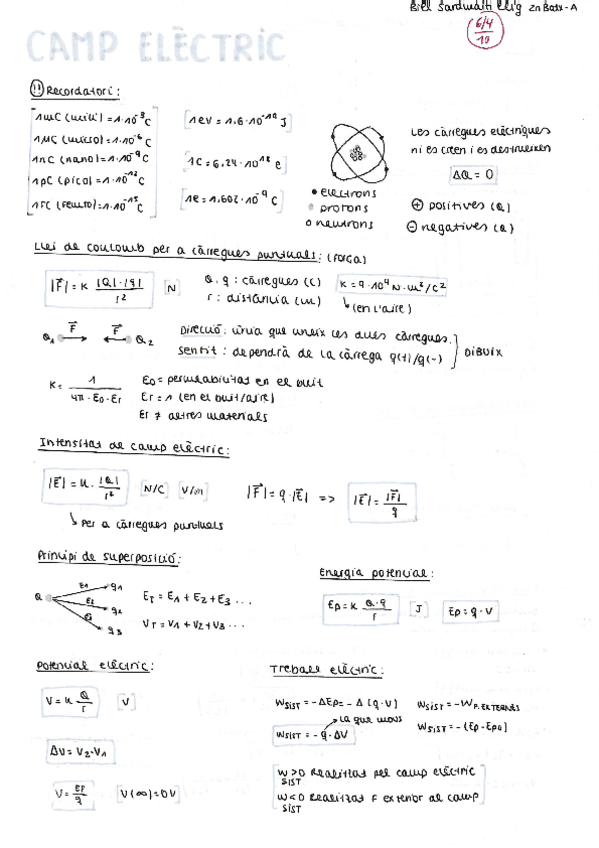 2n Batx-A
6/4
10
CAMP ELÈCTRIC
Recordatori:
1mC (mili) = 1·10⁻³C
1µC (micro) = 1·10⁻⁶C
1nC (nano) = 1·10⁻⁹C
1pC (pico) = 1·10⁻¹²C
1fC (femto) = 1·10⁻¹⁵C
1eV = 1.6·10⁻¹⁹ J
1C = 6.24·10¹⁸ e
1e = 1.602·10⁻⁹ C
electrons
protons
neutrons
Les càrregues elèctriques
ni es creen i es destrueixen
ΔQ = 0
⊕ positives (Q)
⊖ negatives (Q)
Llei de coulomb per a càrregues puntuals: (Força)
|F⃗| = K |Q|·|q| / r² [N]
Q, q : càrregues (C)
r : distància (m)
K = 9·10⁹ N·m²/C²
(en l'aire)
Q1 F⃗ F⃗ Q2
Direcció: línia que uneix les dues càrregues.
Sentit: dependrà de la càrrega q(+)/q(-)
DIBUIX
K = 1 / 4π·E0·Er
E0 = permeabilitat en el buit
Er = 1 (en el buit/aire)
Er ≠ altres materials
Intensitat de camp elèctric:
|E⃗| = K · |Q| / r² [N/C] [V/m]
|F⃗| = q·|E⃗| => |E⃗| = |F⃗| / q
Per a càrregues puntuals
Principi de superposició:
Q E1 q1
E2 q2
E3 q3
ET = E1 + E2 + E3 ...
VT = V1 + V2 + V3 ...
Energia potencial:
Ep = K Q·q / r [J] Ep = q·V
Potencial elèctric:
V = K Q / r [V]
ΔV = V2-V1
V = Ep / q [V(∞) = 0V]
Treball elèctric:
WSIST = -ΔEp = -Δ(q·V)
WSIST = -q·ΔV
la que mous
WSIST = -WF.EXTERNES
WSIST = -(Ep-Ep0)
W SIST > 0 Realitzat pel camp elèctric
W SIST < 0 Realitzat F exterior al camp